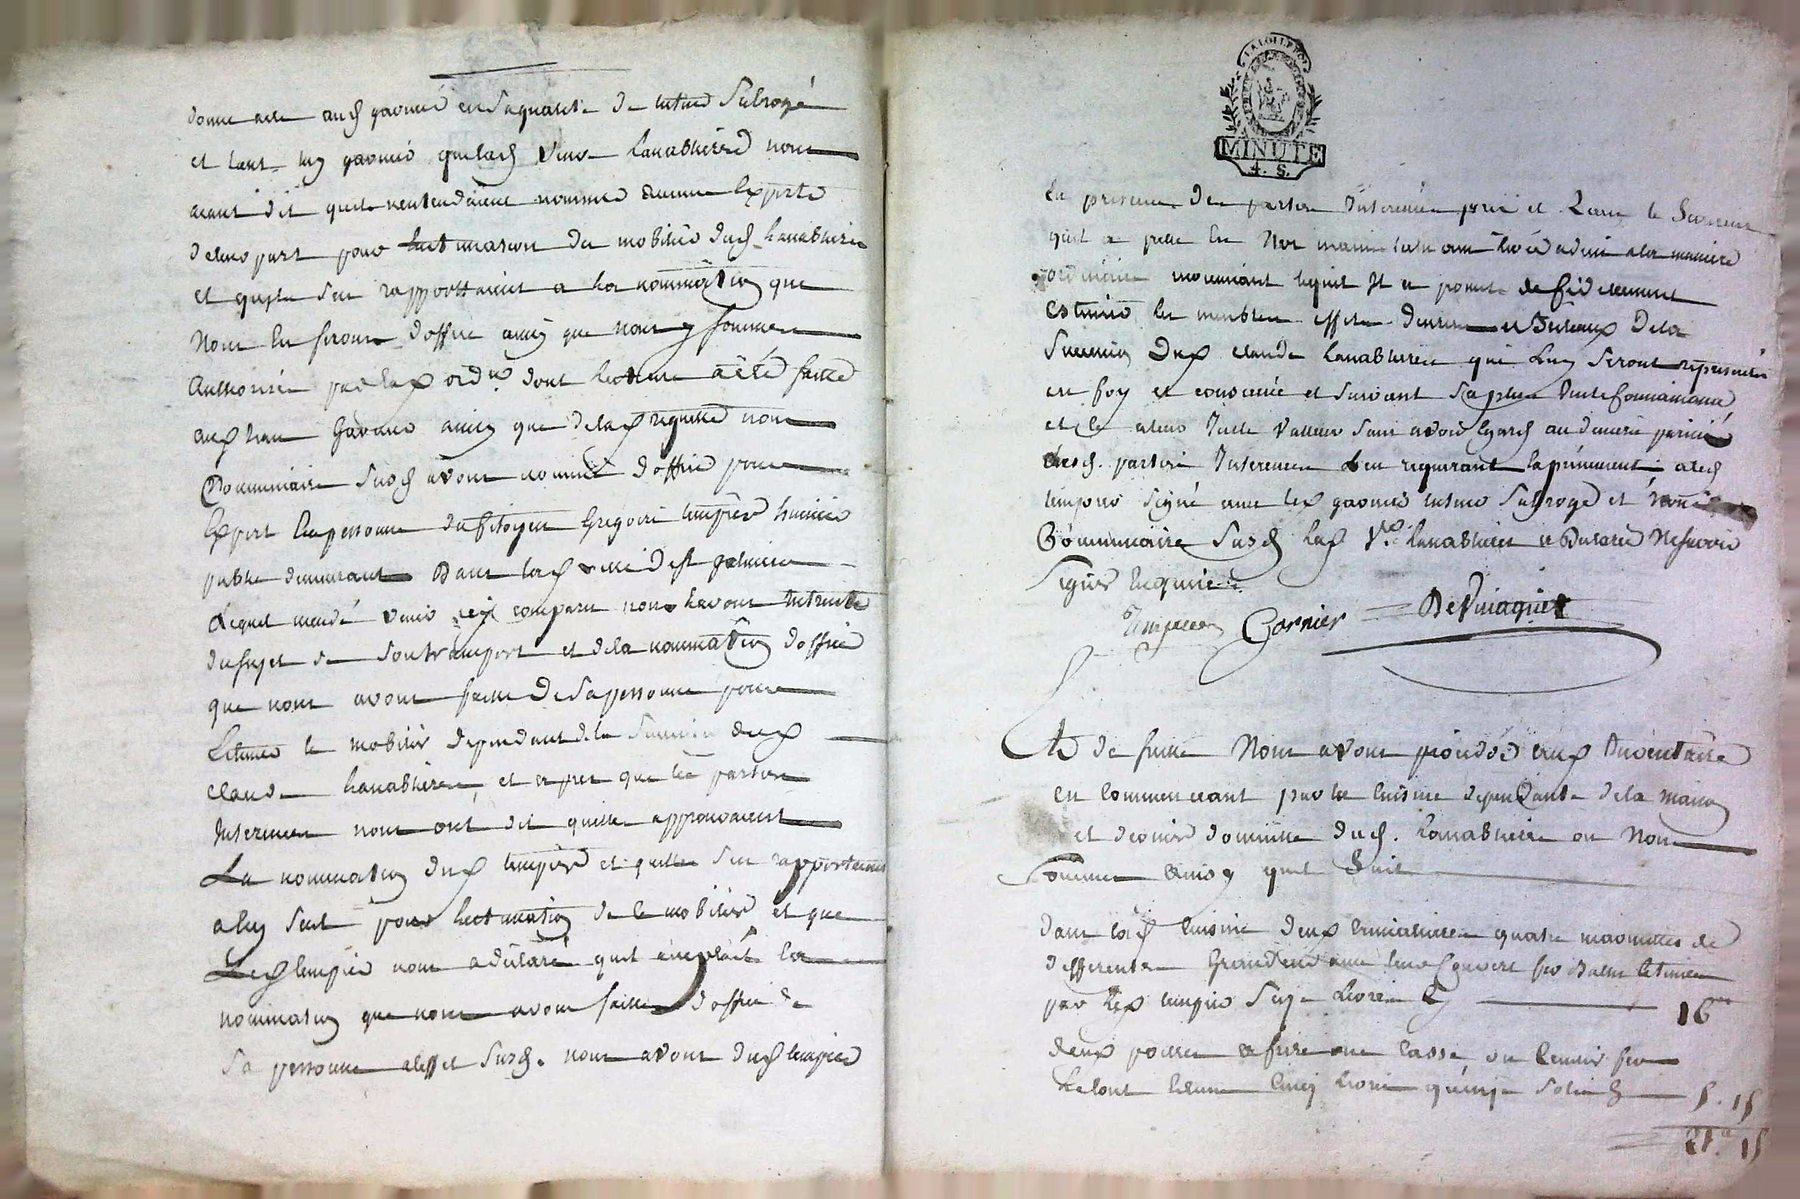 donne acte aud garnier en sa qualité de tuteur subrogé
et tant luy garnier que lad veuve Lanabliere nous
aiant dit quils nentendaient nommer aucune Experts
de leur part pour lestimation du mobilier dud. Lanabliere
et quils sen rapportaient a la nommination que
Nous En ferons doffice ainsy que nous y sommes
Authorisée par lad ord.ce dont lecture a été faitte
aud garnier ainsy que de lad requette nous
Commissaire susd avons nommé doffice pour
Expert la personne du Citoyen Gregoire tempier huissier
public demeurant Dans lad ville
Lequel mandé venir et comparu nous lavons instruit
du sujet de son transport et de la nommination doffice
que nous avons faitte de sa personne pour
Estimer le mobilier dependant de la succession dud
claude Lanabliere, et apres que les parties
Interessées nous ont dit quelles approuvaient
La nommination dud tempier et quelles sen rapportaient
a luy seul pour lestimation de le mobilier et que
Led tempier nous a déclaré quil acceptait la
nommination que nous avons faitte doffice de
sa personne a leffet susd. nous avons dud tempier
LA LOI LE ROI
MINUTE
4. S.
En presence des parties Interessées pris et Recu le Serment
quil a prêté En Nos mains la main levée a dieu a la maniere
ordinaire moyennant lequel Il a promis de fidelement
estimer les meubles effets denrées et Bestiaux De la
Succession Dud claude Lanabliere qui luy seront representés
en foy et conscience et suivant sa plus
et a leur juste valleur sans avoir Egard au denier
desd. parties Interessées de ce requerant la presente ated
tempier signé avec led garnier tuteur subrogé et Nous
Commissaire susd lad V.e Lanabliere a Declaré Ne savoir
signer Enquise
Tempier Garnier DeVinaquet
Et De suitte Nous avons procédé aud Inventaire
en Commenceant par la cuisine dependante de la maison
et dernier domicille dud. Lanabliere ou Nous
sommes ainsy quil suit
dans lad cuisine deux cremalieres quatre marmittes de
differentes Grandeurs avec leurs couvert fer Battu estimée
par led tempier seize livres Cy 16ᵗᵗ
deux poiles a frire une casse ou fer
le tout Estimé Cinq livres quinze sols Cy 5. 15
21ᵗᵗ. 15